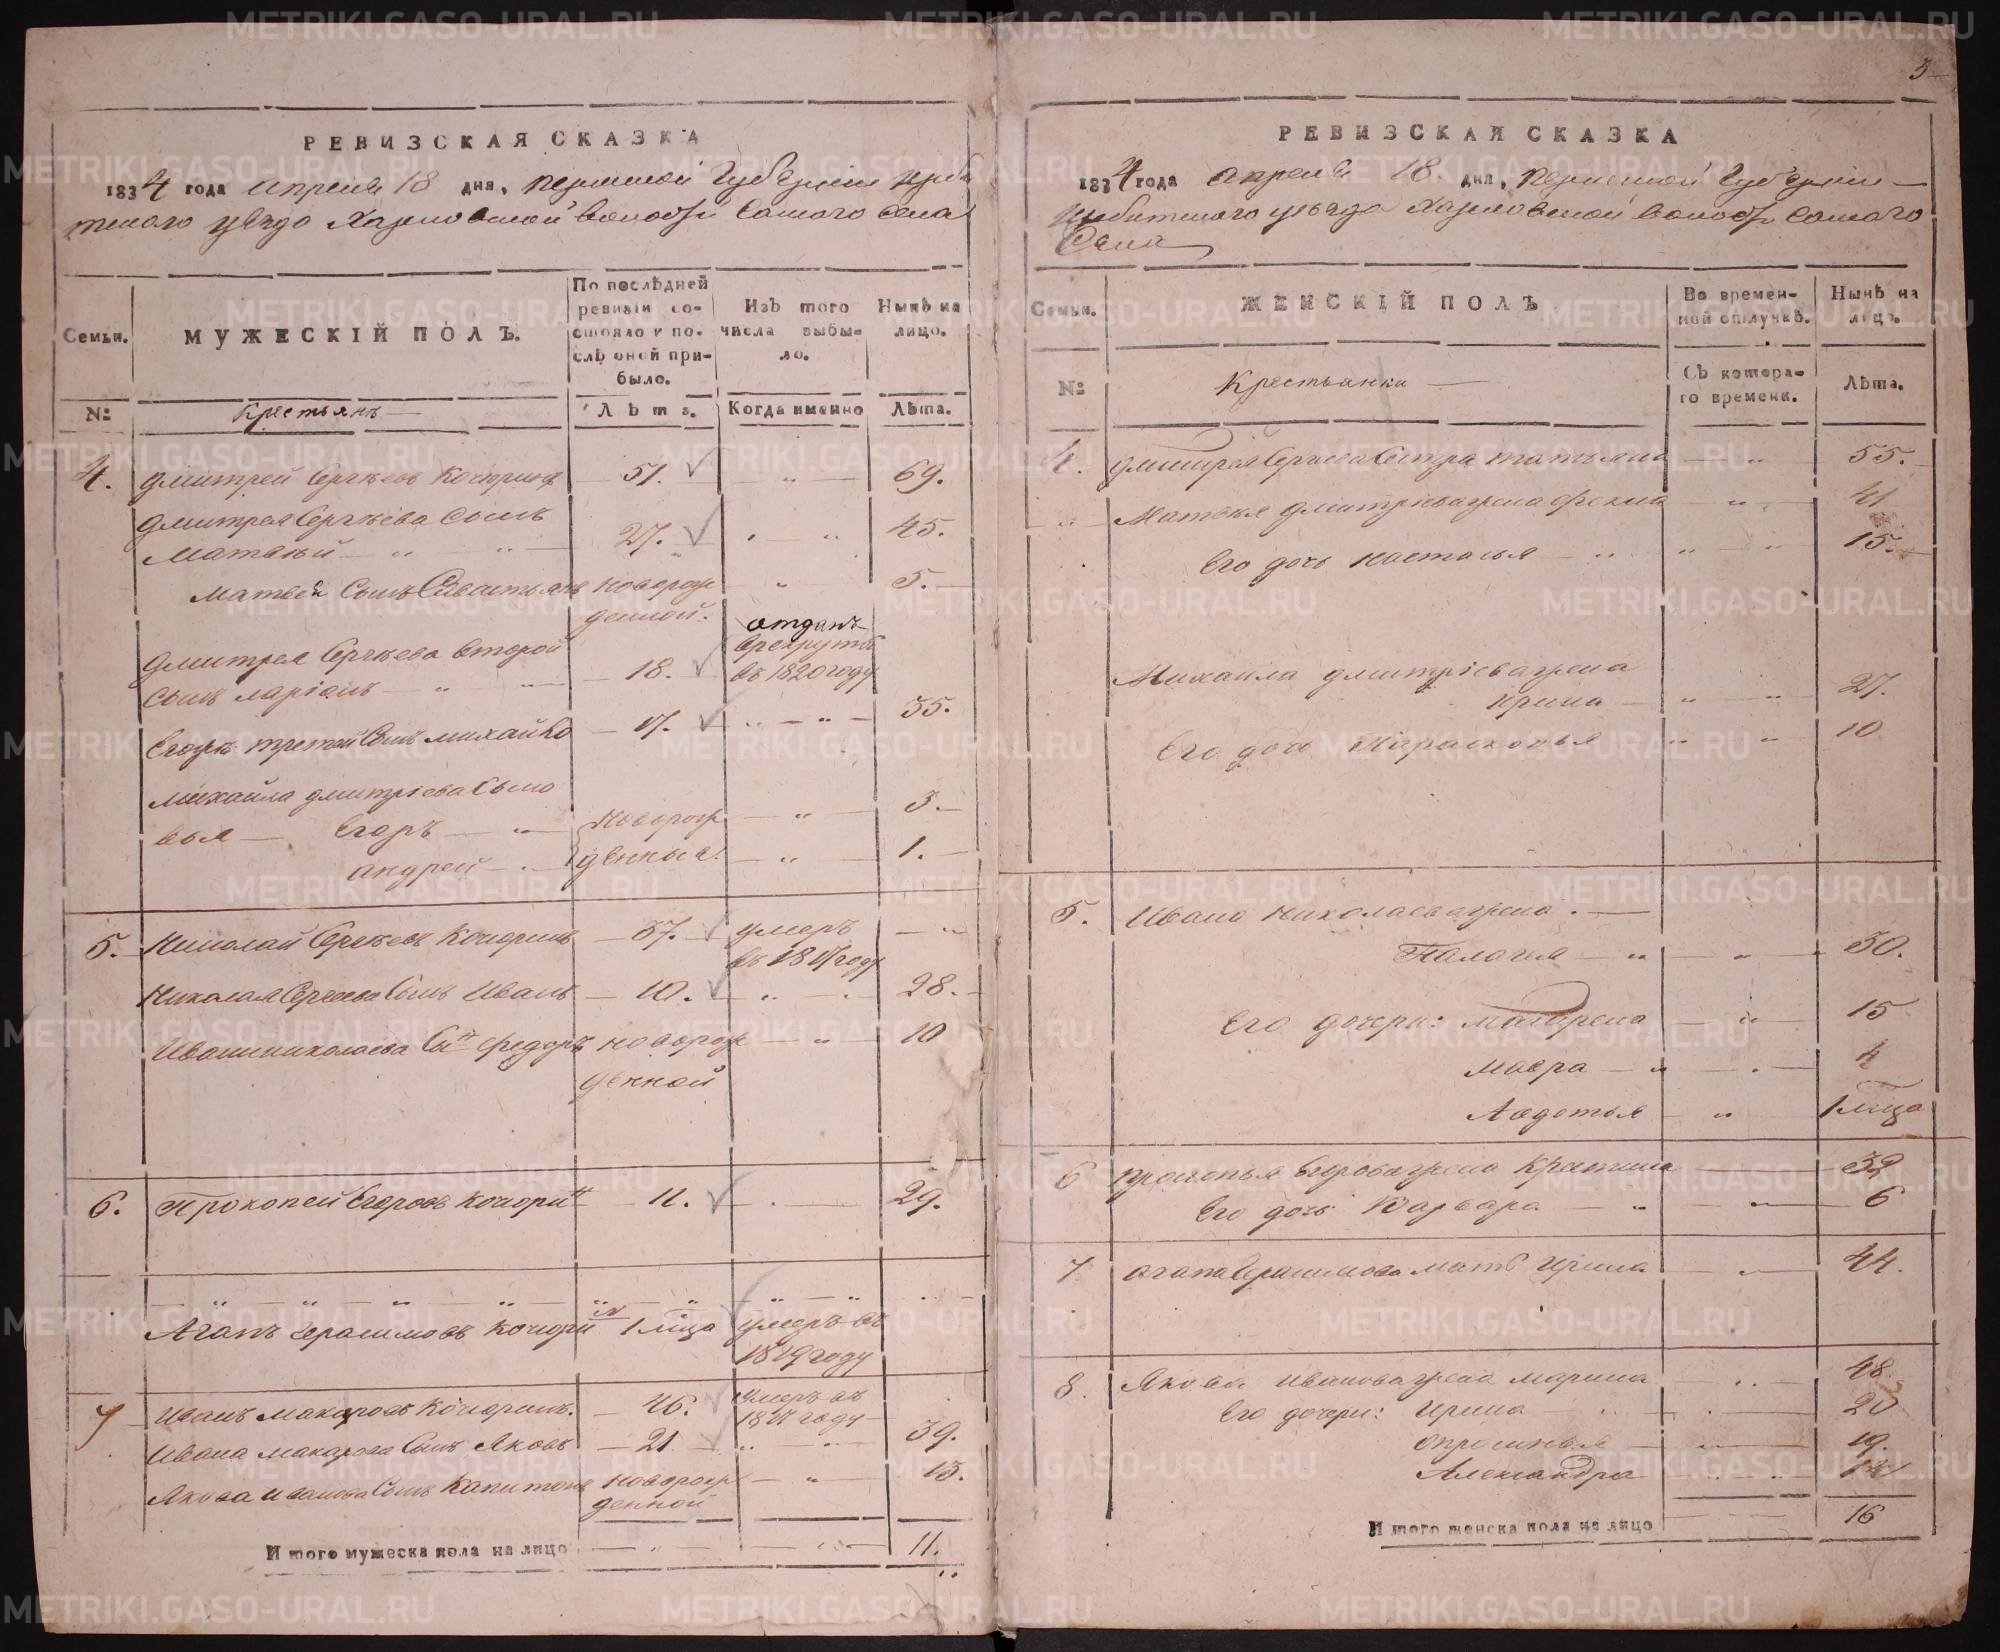 3
РЕВИЗСКАЯ СКАЗКА
1834 года апреля 18 дня, Пермской Губернии Ирби
тского уезда Харловской волости Самого села
Семьи.
МУЖЕСКІЙ ПОЛЪ.
По послѣдней ревизіи состояло и послѣ оной прибыло.
Изъ того числа выбыло.
Нынѣ на лицо.
№
Крестьянъ
Лѣта.
Когда именно
Лѣта.
4. Дмитрей Сергѣевъ Кочюринъ 51. 69.
Дмитрея Сергѣева сынъ
Матвѣй 27. 45.
Матвея Сынъ Севастьянъ новорож 5.
денной.
отданъ
Дмитрея Сергѣева второй врекруты
сынъ ларіонъ 18. въ 1820 году
Егоже третей Сынъ михайло 17. 35.
Михайла дмитріева Сыно
вья Егоръ новорож 3.
андрей денные. 1.
5. Николай Сергѣевъ Кочюринъ 37. умеръ
въ 1817 году
Николая Сергеева Сынъ Иванъ 10. 28.
Ивана николаева Сынъ федоръ новорож 10
денной
6. Прокопей Егоровъ Кочюринъ 11. 29.
Агапъ Герасимовъ Кочюринъ 1 мца умеръ въ
1819 году
7 Иванъ макаровъ Кочюринъ. 46. умеръ въ
18 году
Ивана макарова Сынъ Яковъ 21 39.
Якова иванова Сынъ Капитонъ новорож 15.
денной
И того мужеска пола на лицо 11.
РЕВИЗСКАЯ СКАЗКА
1834 года апреля 18. дня, Пермской Губернии
Ирбитского уезда Харловской волости Самого
Села
Семьи.
ЖЕНСКІЙ ПОЛЪ
Во временной отлучкѣ.
Нынѣ на лицо.
№
Крестьянки
Съ котораго времени.
Лѣта.
4. Дмитрея Сергеева Сестра татьяна 55.
Матвея дмитріева жена фекла 41
Его дочь настасья 15.
Михаила дмитріева жена
Ирина 27.
Его дочь Парасковья 10
5. Ивана николаева жена
Палагея 30.
Его дочери: матрена 15
мавра 4
Авдотья 1 мца
6 Прокопья Егорова жена Крестина 32
Его дочь Варвара 6
7 Агапа Герасимова мать Ирина 44.
8. Якова иванова жена марина 48.
Его дочери: Ирина 20
апросинья 19.
Александра
И того женска пола на лицо 16
METRIKI.GASO-URAL.RU